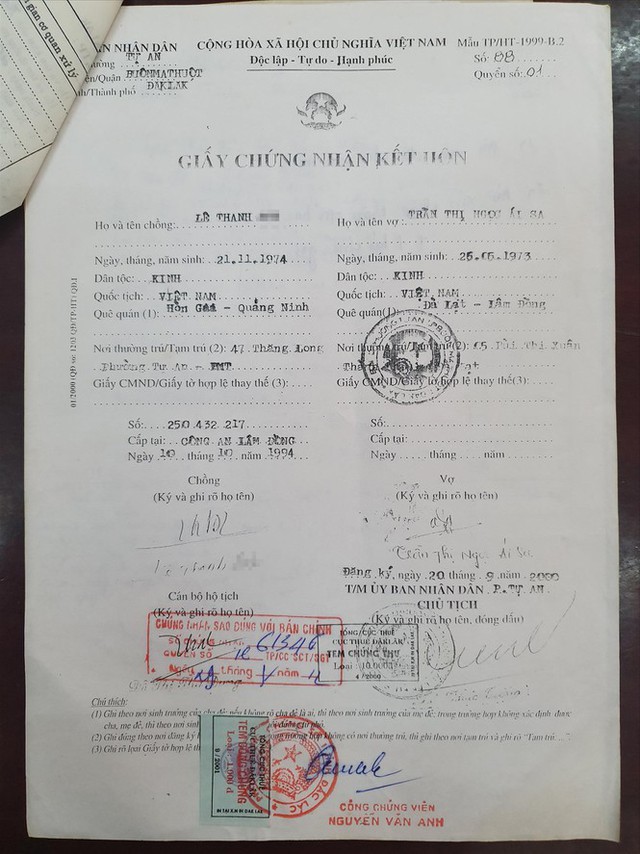 gian cơ quan xử lý
BAN NHÂN DÂN
CỘNG HÒA XÃ HỘI CHỦ NGHĨA VIỆT NAM
Mẫu TP/HT-1999-B.2
TỰ AN
Độc lập - Tự do - Hạnh phúc
Số: 08
Quyển số: 01
BUÔNMATHUỘT
ĐĂKLĂK
GIẤY CHỨNG NHẬN KẾT HÔN
Họ và tên chồng: LÊ THANH
Họ và tên vợ: TRẦN THỊ NGỌC ÁI SA
Ngày, tháng, năm sinh: 21.11.1974
Ngày, tháng, năm sinh: 25.05.1973
Dân tộc: KINH
Dân tộc: KINH
Quốc tịch: VIỆT NAM
Quốc tịch: VIỆT NAM
Quê quán (1): Hồn Gai - Quảng Ninh
Quê quán (1): Đà Lạt - Lâm Đồng
Nơi thường trú/Tạm trú (2): 47 Thăng Long
Nơi thường trú/Tạm trú (2): Bùi Thị Xuân
Phường Tự An - BMT
Giấy CMND/Giấy tờ hợp lệ thay thế (3):
Giấy CMND/Giấy tờ hợp lệ thay thế(3):
Số: 250.432.217
Số:
Cấp tại: CÔNG AN LÂM ĐỒNG
Cấp tại:
Ngày 10 tháng 10 năm 1994
Ngày tháng năm
Chồng
Vợ
(Ký và ghi rõ họ tên)
(Ký và ghi rõ họ tên)
Trần Thị Ngọc Ái Sa
Đăng ký, ngày 20 tháng 9 năm 2000
Cán bộ hộ tịch
T/M ỦY BAN NHÂN DÂN P.TỰ AN
CHỦ TỊCH
(Ký và ghi rõ họ tên)
(Ký, ghi rõ họ tên, đóng dấu)
CHỨNG NHẬN SAO ĐÚNG VỚI BẢN CHÍNH
61346
QUYỂN SỐ TP/CC SCT/SGT
Ngày tháng năm
TỔNG CỤC THUẾ
CỤC THUẾ ĐĂKLĂK
TEM CHỨNG THƯ
Loại 10.000đ
4/2000
Chú thích:
(1) Ghi theo nơi sinh trưởng của cha đẻ; nếu không rõ cha đẻ là ai, thì theo nơi sinh trưởng của mẹ đẻ; trong trường hợp không xác định được
cha, mẹ đẻ, thì theo nơi sinh
(2) Ghi đúng theo nơi đăng ký trường hợp không có nơi thường trú, thì ghi theo nơi tạm trú và ghi rõ "Tạm trú..."
(3) Ghi rõ loại Giấy tờ hợp lệ
TỔNG CỤC THUẾ
CỤC THUẾ ĐĂKLĂK
9/2001
ĐẮC LẮC
CÔNG CHỨNG VIÊN
NGUYỄN VĂN ANH